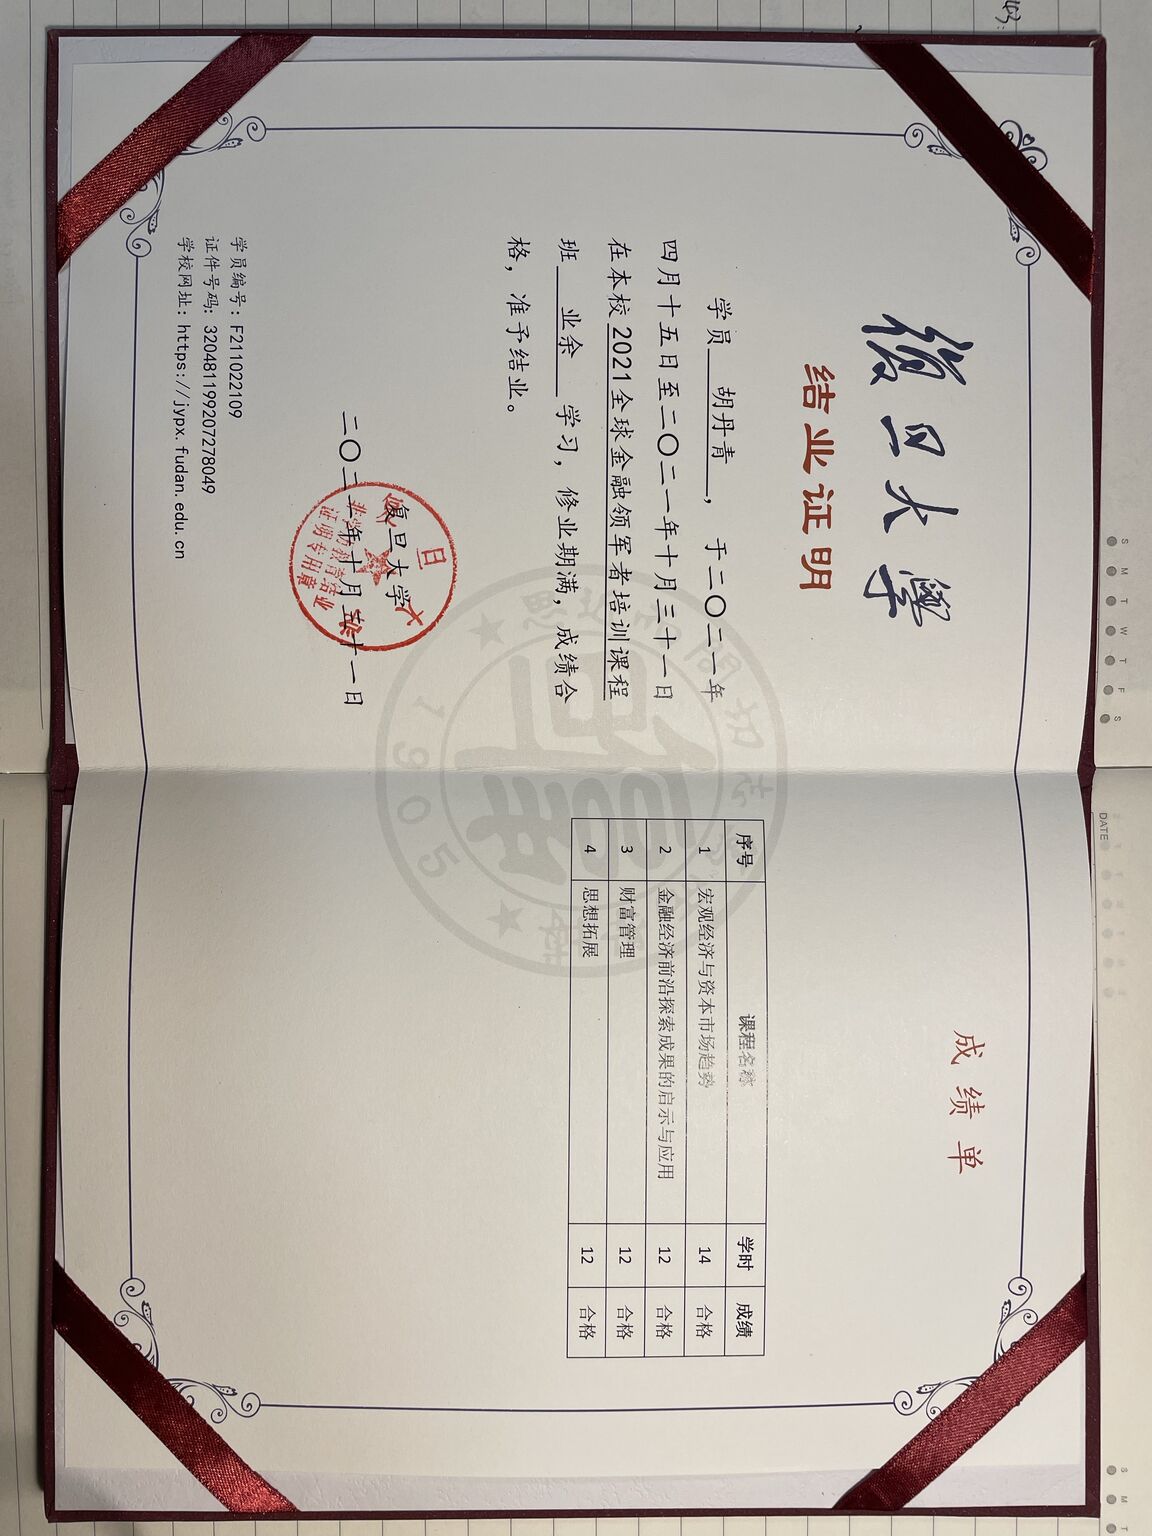 復旦大學
结业证明
学员 胡丹青 ，于二〇二一年
四月十五日至二〇二一年十月三十一日
在本校 2021全球金融领军者培训课程
班 业余 学习，修业期满，成绩合
格，准予结业。
复旦大学
二〇二一年十月三十一日
学员编号：F211022109
证件号码：320481199207278049
学校网址：https://jypx.fudan.edu.cn
成绩单
序号 课程名称 学时 成绩
1 宏观经济与资本市场趋势 14 合格
2 金融经济前沿探索成果的启示与应用 12 合格
3 财富管理 12 合格
4 思想拓展 12 合格
1905
DATE
S M T W T F S